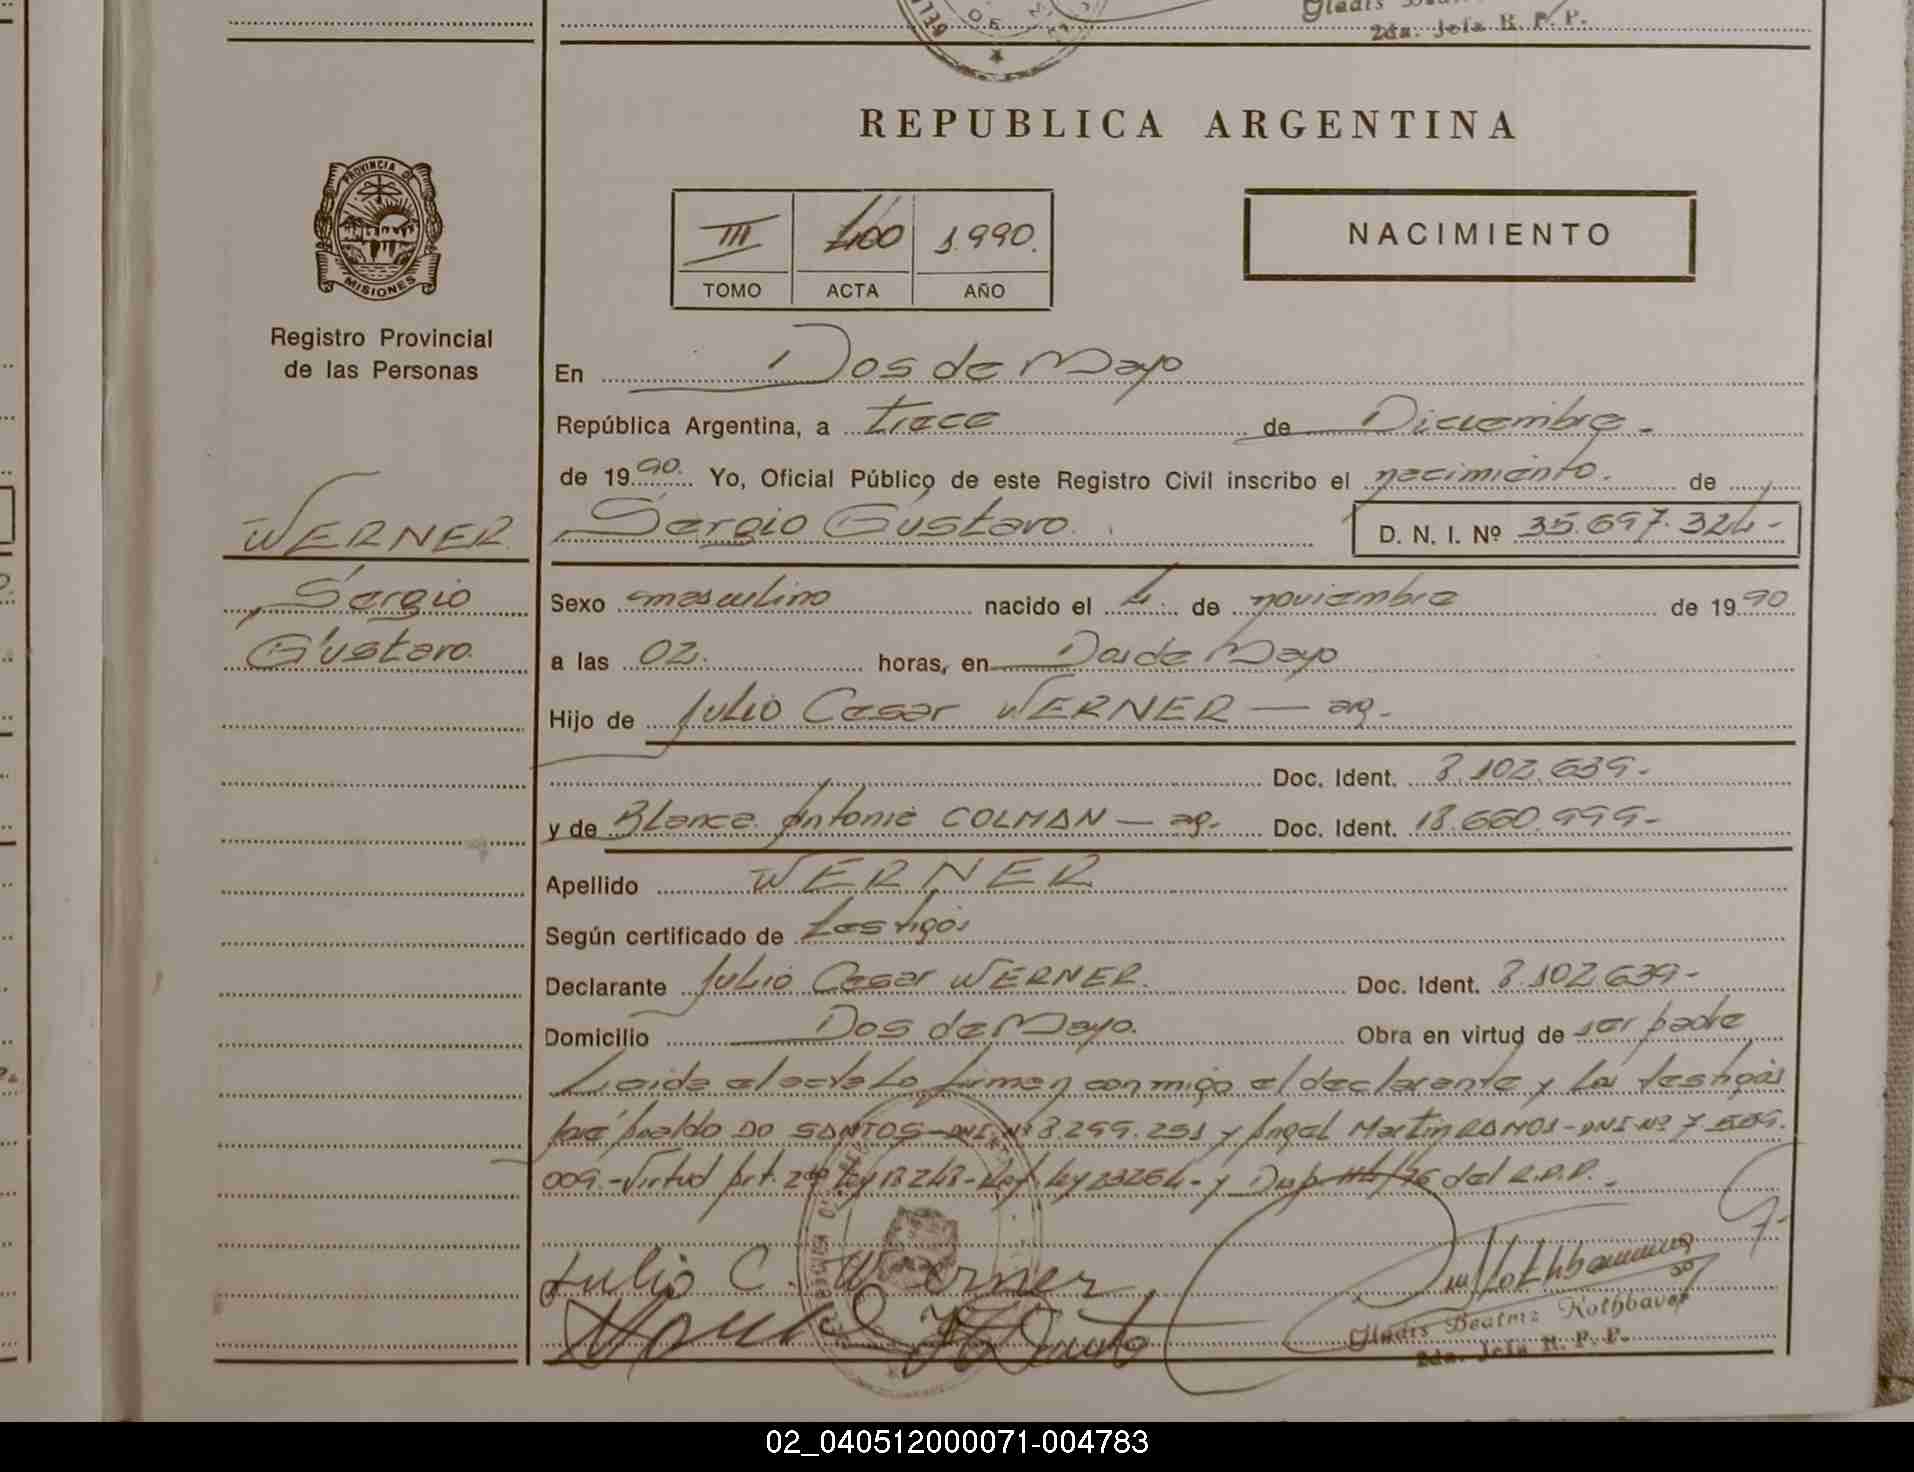 Gladis
2da. Jefa R. P. P.
REPUBLICA ARGENTINA
PROVINCIA DE
MISIONES
Registro Provincial
de las Personas
III 400 1.990.
TOMO ACTA AÑO
NACIMIENTO
En Dos de Mayo
República Argentina, a trece de Diciembre.-
de 1990. Yo, Oficial Público de este Registro Civil inscribo el nacimiento. de
WERNER
Sergio Gustavo. D. N. I. Nº 35.697.324-
Sergio
Sexo masculino nacido el 4. de noviembre de 1990
Gustavo
a las 02. horas, en Dos de Mayo
Hijo de Julio Cesar WERNER — arg.-
Doc. Ident. 8.102.639-
y de Blanca Antonia COLMAN — ag.- Doc. Ident. 18.660.999-
Apellido WERNER
Según certificado de testigos
Declarante Julio Cesar WERNER. Doc. Ident. 8.102.639-
Domicilio Dos de Mayo. Obra en virtud de ser padre
Leida el acta La firman conmigo el declarante y los testigos
José DO SANTOS-DNI Nº 8.299.251 y Angel Martin RAMOS-DNI-Nº 7.509.
009.-Virtud Art. Ley 18248- Ley 23264- y Disp del R.P.P.-
Julio C. Werner
Gladis Beatriz Rothbauer
2da. Jefa R. P. P.
02_040512000071-004783